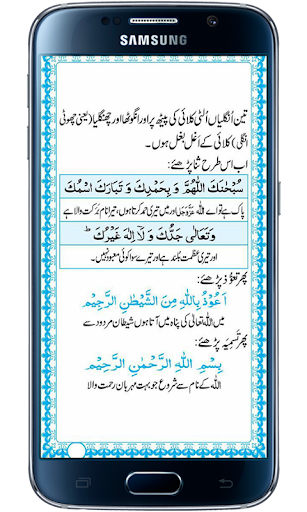 SAMSUNG
تین اُنگلیاں اُلٹی کلائی کی پیٹھ پر اور انگوٹھا اور چھنگلیا (یعنی چھوٹی
انگلی) کلائی کے اَغل بغل ہوں۔
اب اس طرح ثنا پڑھئے:
سُبْحٰنَكَ اللّٰهُمَّ وَ بِحَمْدِكَ وَ تَبَارَكَ اسْمُكَ
پاک ہے تو اے اللہ عَزَّوَجَلَّ اور میں تیری حمد کرتا ہوں، تیرا نام بَرَکت والا ہے
وَتَعَالٰى جَدُّكَ وَ لَاۤ اِلٰهَ غَيْرُكَ ؕ
اور تیری عظمت بلند ہے اور تیرے سوا کوئی معبود نہیں۔
پھر تعوُّذ پڑھئے:
اَعُوْذُ بِاللّٰهِ مِنَ الشَّيْطٰنِ الرَّجِيْم
میں اللہ تعالٰی کی پناہ میں آتا ہوں شیطان مردود سے
پھر تَسْمِیَہ پڑھئے:
بِسْمِ اللّٰهِ الرَّحْمٰنِ الرَّحِيْم
اللہ کے نام سے شروع جو بہت مہربان رحمت والا